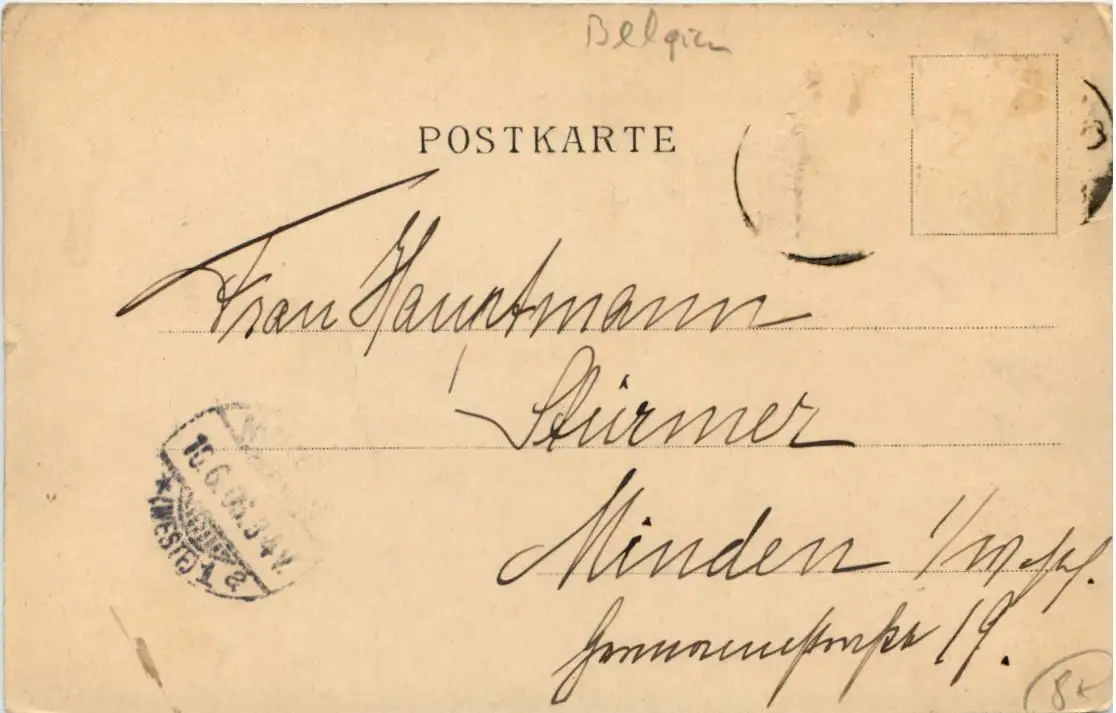 Belgien
POSTKARTE
Frau Hauptmann
Stürmer
Minden i/Westf.
19.
10.6.06.3-4V.
* (WESTF) 1 a
8